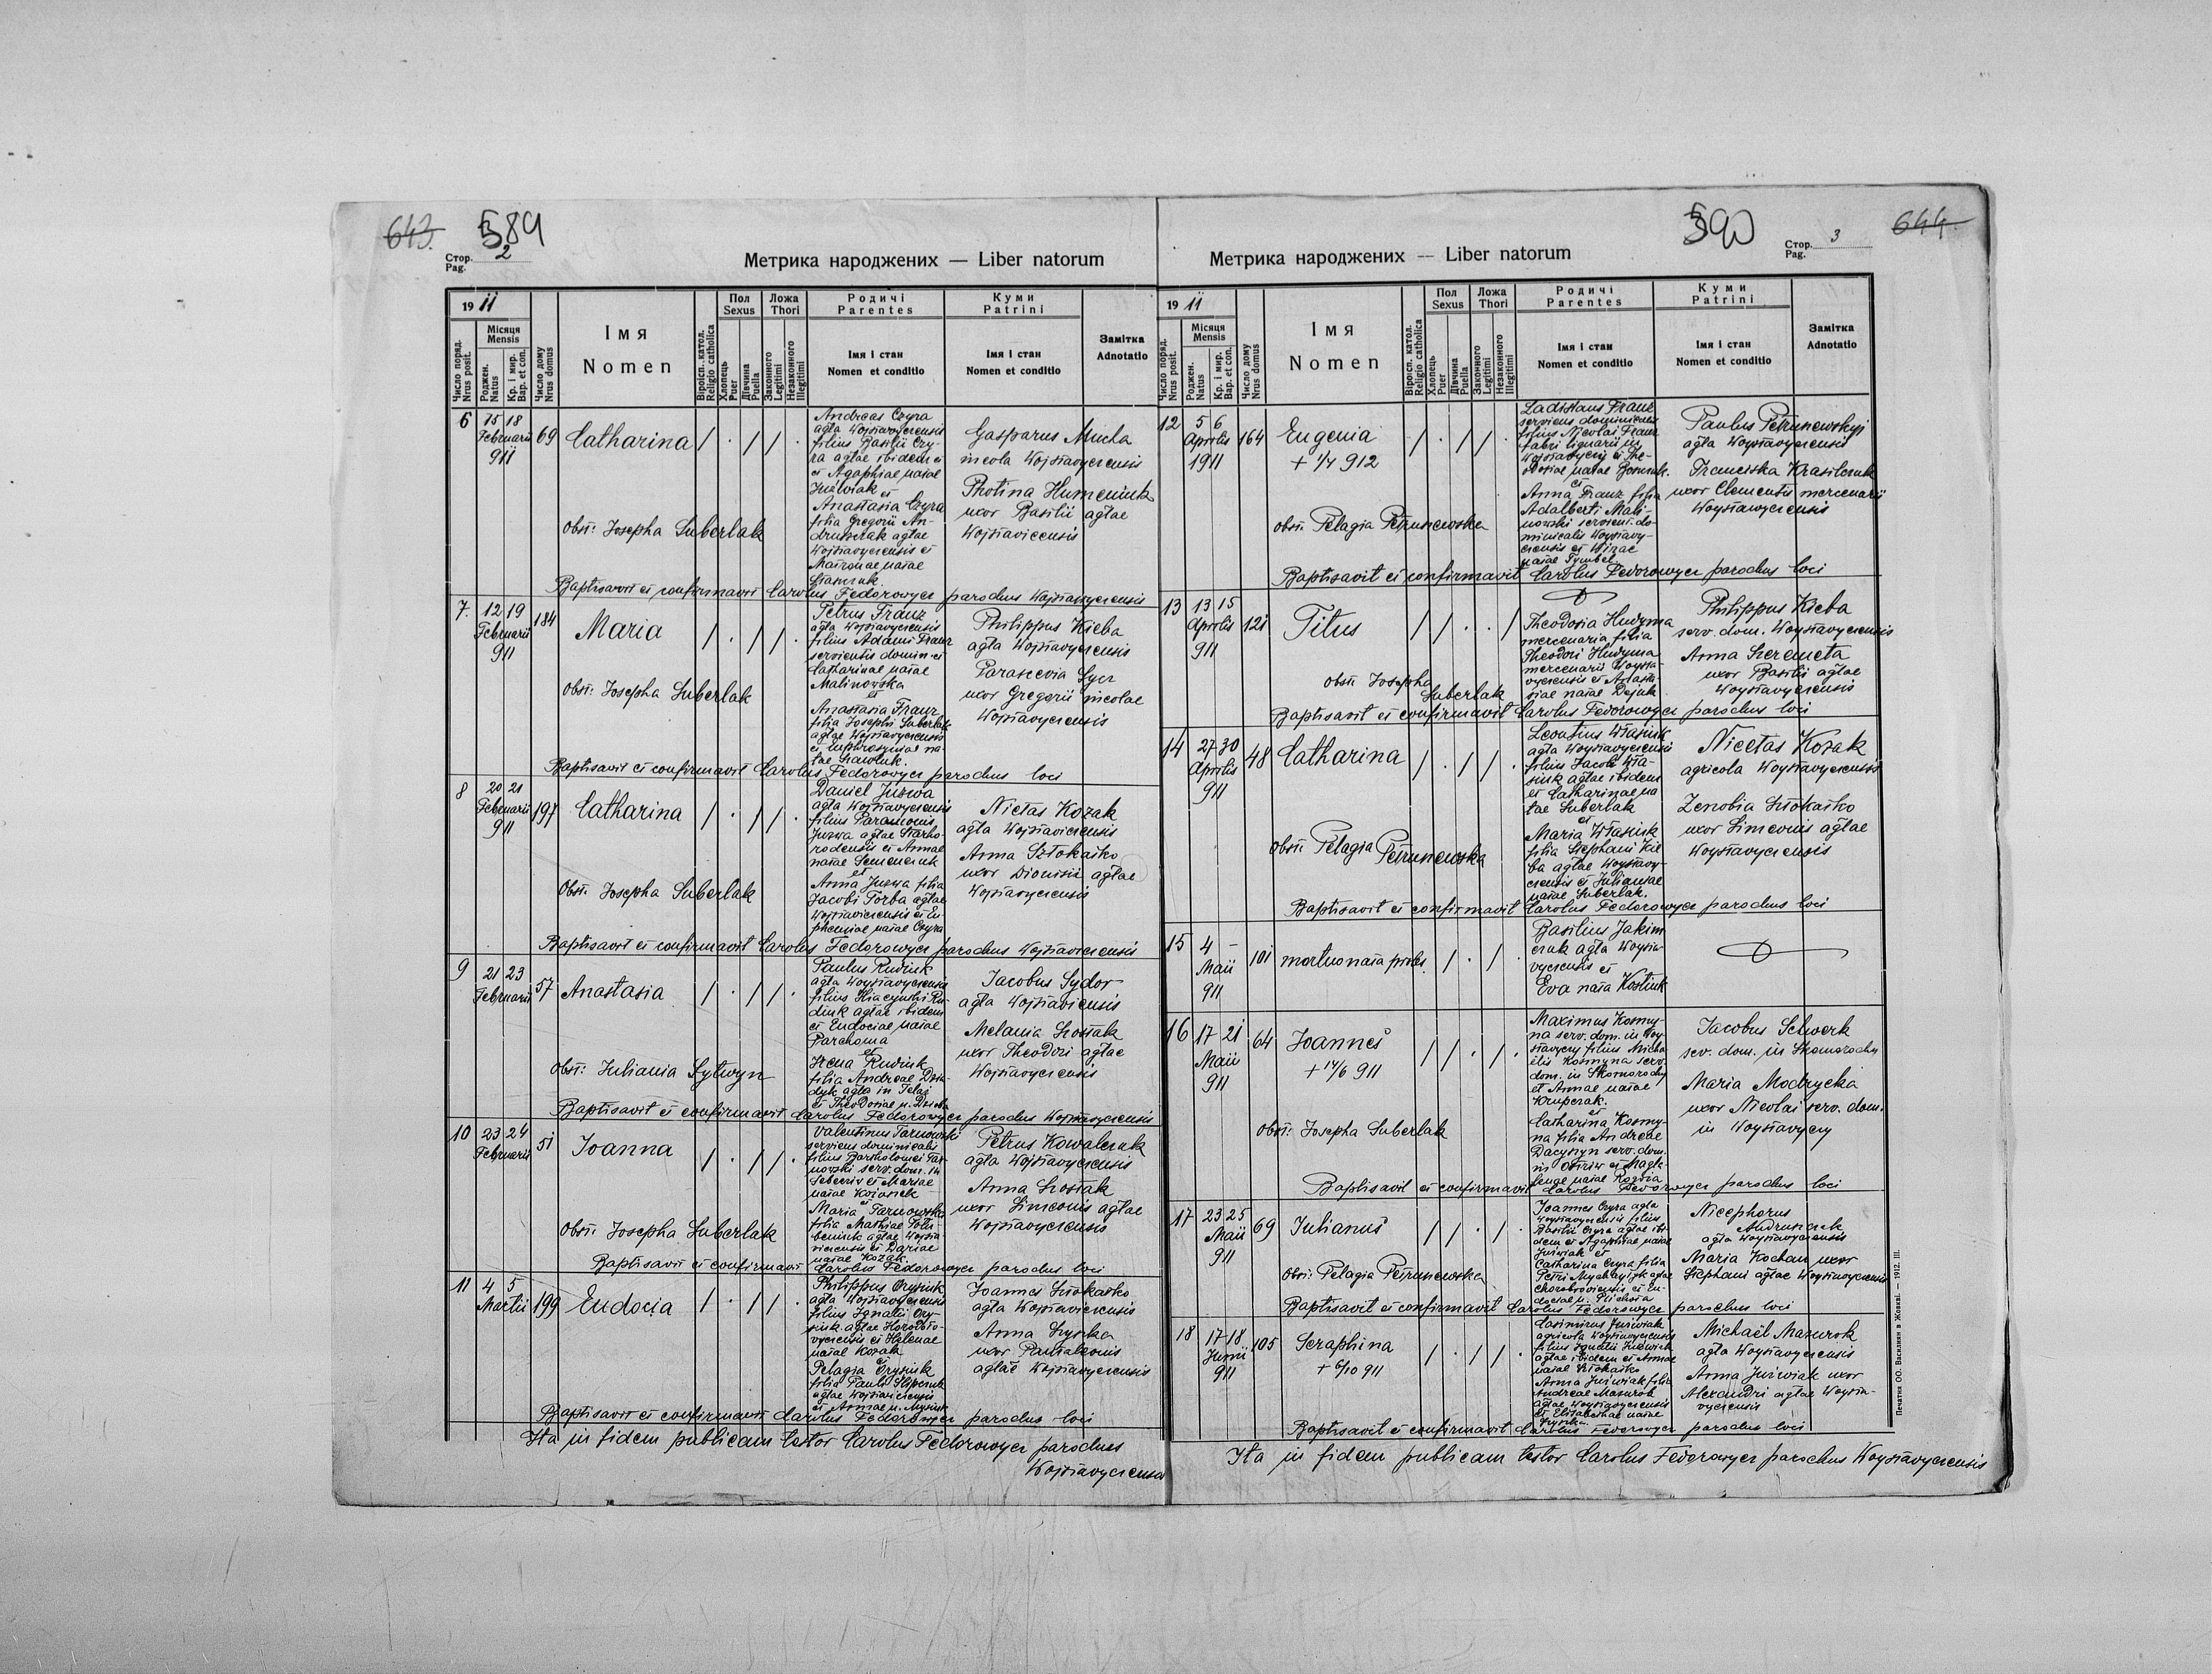 643.
589
Стор. 2
Pag.
Метрика народжених — Liber natorum
19 11
Число поряд.
Nrus posit.
Місяця
Mensis
Роджен.
Natus
Кр. і мир.
Bap. et con.
Число дому
Nrus domus
Імя
Nomen
Віроісп. катол.
Religio catholica
Пол
Sexus
Хлопець
Puer
Дівчина
Puella
Ложа
Thori
Законного
Legitimi
Незаконного
Illegitimi
Родичі
Parentes
Імя і стан
Nomen et conditio
Куми
Patrini
Імя і стан
Nomen et conditio
Замітка
Adnotatio
6 15 18 Februarii 911 69 Catharina / · / / ·
Andreas Czyra
agta Wojsławycensis
filius Basilii Czy-
ra agtae ibidem et
et Agaphiae natae
Juźwiak et
Anastasia Czyra
filia Gregorii An-
druszczak agtae
Wojsławycensis et
Matronae natae
Gasparus Mucha
incola Wojsławycensis
Photina Humeniuk
uxor Basilii agtae
Wojsławicensis
Obst: Josepha Suberlak
Baptisavit et confirmavit Carolus Fedorowycz parochus Wojsławycensis
7. 12 19 Februarii 911 184 Maria / · / / ·
Petrus Franz
agta Wojsławycensis
filius Adami Franz
servientis domin. et
Catharinae natae
Malinowska
et
Anastasia Franz
filia Josephi Suberlak
agtae Wojsławycensis
et Euphrosyniae na-
tae
Philippus Kieba
agta Wojsławycensis
Parascevia Sycz
uxor Gregorii incolae
Wojsławycensis
Obst: Josepha Suberlak
Baptisavit et confirmavit Carolus Fedorowycz parochus loci
8 20 21 Februarii 911 197 Catharina / · / / ·
Daniel Juzwa
agta Wojsławycensis
filius Paramonis
Juzwa agtae Starho-
rodensis et Annae
natae Semeneruk
et
Anna Juzwa filia
Jacobi Torba agtae
Wojsławicensis et Eu-
phemiae natae Czyra
Nicetas Kozak
agta Wojsławicensis
Anna Sztokajko
uxor Dionisii agtae
Wojsławycensis
Obst: Josepha Suberlak
Baptisavit et confirmavit Carolus Fedorowycz parochus Wojsławicensis
9 21 23 Februarii 57 Anastasia / · / / ·
Paulus Rudiuk
agta Wojsławycensis
filius Hiacynthi Ru-
diuk agtae ibidem
et Eudociae natae
Parchoma
et
Irena Rudiuk
filia Andreae Dzia-
dyk agta in Telaż
et Theodosiae n.
Jacobus Sydor
agta Wojsławicensis
Melania Szostak
uxor Theodori agtae
Wojsławycensis
Obst: Juliania Sytwyn
Baptisavit et confirmavit Carolus Fedorowycz parochus Wojsławycensis
10 23 24 Februarii 51 Joanna / · / / ·
Valentinus Tarnowski
serviens dominicalis
filius Bartholomei Tar-
nowski serv. dom. in
Sebeczów et Mariae
natae
et
Maria Tarnowska
filia Mathiae
agtae Wojsła-
vicensis et Dariae
natae Kozak.
Petrus Kowalczuk
agta Wojsławycensis
Anna Szostak
uxor Simeonis agtae
Wojsławycensis
Obst: Josepha Suberlak
Baptisavit et confirmavit Carolus Fedorowycz parochus loci
11 4 5 Martii 199 Eudocia / · / / ·
Philippus
agta Wojsławycensis
filius Ignatii
agtae
et Helenae
natae Kozak
et
Pelagia
filia Pauli
agtae Wojsławicensis
et Annae n.
Joannes Sztokajko
agta Wojsławicensis
Anna Łyszka
uxor Pantaleonis
agtae Wojsławycensis
Baptisavit et confirmavit Carolus Fedorowycz parochus loci
Ita in fidem publicam testor Carolus Fedorowycz parochus
Wojsławycensis
590
Стор. 3
Pag.
644
Метрика народжених — Liber natorum
19 11
Число поряд.
Nrus posit.
Місяця
Mensis
Роджен.
Natus
Кр. і мир.
Bap. et con.
Число дому
Nrus domus
Імя
Nomen
Віроісп. катол.
Religio catholica
Пол
Sexus
Хлопець
Puer
Дівчина
Puella
Ложа
Thori
Законного
Legitimi
Незаконного
Illegitimi
Родичі
Parentes
Імя і стан
Nomen et conditio
Куми
Patrini
Імя і стан
Nomen et conditio
Замітка
Adnotatio
12 5 6 Aprilis 1911 164 Eugenia / · / / ·
+ 1/4 912
Ladislaus Franz
serviens dominicalis
filius Nicolai Franz
fabri lignarii in
Wojsławycy et The-
odosiae natae
et
Anna Franz filia
Adalberti Mali-
nowski servient. do-
minicalis Woysławy-
censis et
natae Tymbel
Paulus Petrunewskyj
agta Woysławycensis
Franciska Krasilczuk
uxor Clementis mercenarii
Woysławycensis
obst: Pelagia Petrunewska
Baptisavit et confirmavit Carolus Fedorowycz parochus loci
13 13 15 Aprilis 911 121 Titus / / · · /
Theodosia Hudyma
mercenaria filia
Theodori Hudyma
mercenarii Woysła-
vycensis et Anasta-
siae natae Dejuk
Philippus Kieba
serv. dom. Woysławycensis
Anna Szeremeta
uxor Basilii agtae
Woysławycensis
obst: Josepha
Suberlak
Baptisavit et confirmavit Carolus Fedorowycz parochus loci
14 27 30 Aprilis 911 48 Catharina / · / / ·
Leontius Własiuk
agta Woysławycensis
filius Jacobi Wła-
siuk agtae ibidem
et Catharinae na
tae Suberlak
et
Maria Własiuk
filia Stephani Kie
ba agtae Woysławy-
censis et Julianiae
natae Suberlak.
Nicetas Kozak
agricola Woysławycensis
Zenobia Sztokajko
uxor Simeonis agtae
Woysławycensis
Obst: Pelagia Petrunewska
Baptisavit et confirmavit Carolus Fedorowycz parochus loci
15 4 – Maii 911 101 mortuo nata proles / · / ·
Basilius Jakim
czuk agta Woysła-
vycensis et
Eva nata Kostiuk
16 17 21 Maii 911 64 Joannes / / · / ·
+ 14/6 911
Maximus Kosmy-
na serv. dom. in Woy-
sławycy filius Micha
elis Kosmyna serv.
dom. in Skomorochy
et Annae natae
Krupczak.
et
Catharina Kosmy-
na filia Andreae
Dacyszyn serv. dom.
in Ostriw et Magda-
lenae natae
Jacobus Selwerk
serv. dom. in Skomorochy
Maria Modrycka
uxor Nicolai serv. dom.
in Woysławycy
Obst: Josepha Suberlak
Baptisavit et confirmavit Carolus Fedorowycz parochus loci
17 23 25 Maii 911 69 Julianus / / · / ·
Joannes Czyra agta
Woysławycensis filius
Basilii Czyra agtae ibi-
dem et Agaphiae natae
Juźwiak et
Catharina Czyra filia
Petri agtae
Chorobroviensis et Eu-
dociae n.
Nicephorus
Andrusczak
agta Woysławycensis
Maria Kochan uxor
Stephani agtae Woysławycensis
Obst: Pelagia Petrunewska
Baptisavit et confirmavit Carolus Fedorowycz parochus loci
18 17 18 Junii 911 105 Seraphina / · / / ·
+ 6/10 911
Casimirus Juźwiak
agricola Woysławycensis
filius Ignatii Juźwiak
agtae ibidem et Annae
natae Sztokajko
Anna Juźwiak filia
Andreae Mazurok
agtae Woysławycensis
et Elisabethae natae
Michaël Mazurok
agta Woysławycensis
Anna Juźwiak uxor
Alexandri agtae Woysła-
vycensis
Baptisavit et confirmavit Carolus Fedorowycz parochus loci
Ita in fidem publicam testor Carolus Fedorowycz parochus Woysławycensis
Печатня ОО. Василиян в Жовкві. — 1912. III.